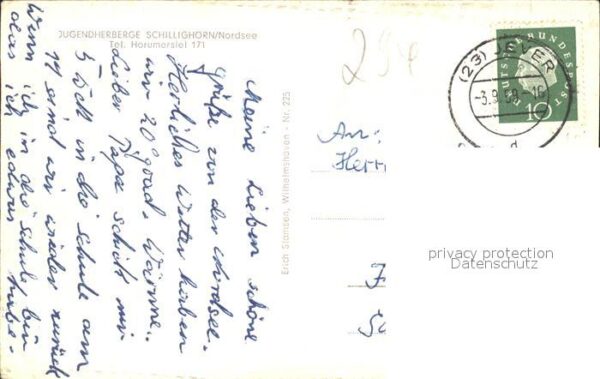 JUGENDHERBERGE SCHILLIGHORN/Nordsee
Tel. Horumersiel 171
Meine Lieben schöne
Grüße von der Nordsee.
Herliches Wetter haben
wir 20° grad. Wärme..
Lieber Papa schick mir
5 in die Schule am
19 sind wir wieder zurück
Wenn ich in die Schule bin
das ich etwas habe.
Erich Stamsen, Wilhelmshaven - Nr. 225
An:
Herr
(23) JEVER
-3.9.59-16
DEUTSCHE BUNDESPOST
10
privacy protection
Datenschutz